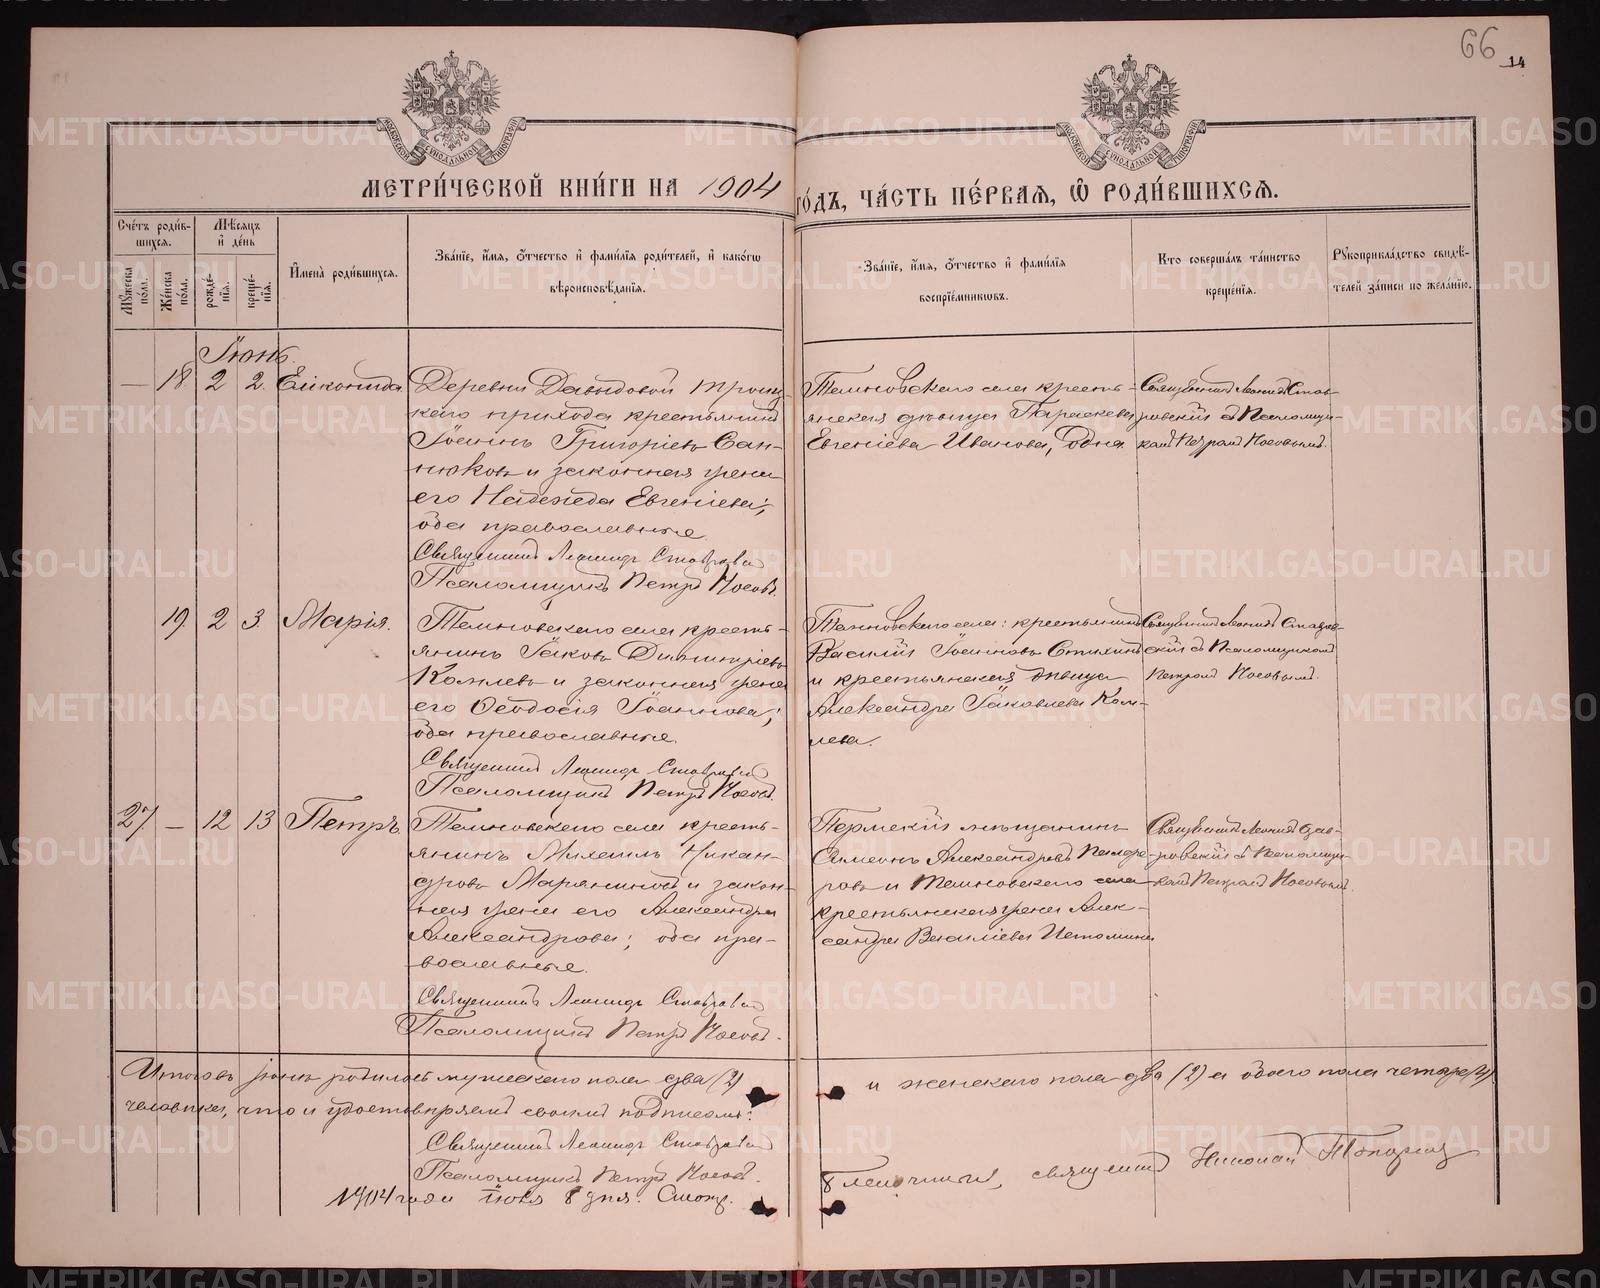 66
14
МЕТРИ́ЧЕСКОЙ КНИ́ГИ НА 1904 ГО́ДЪ, ЧА́СТЬ ПЕ́РВАЯ, Ѡ РОДИ́ВШИХСЯ.
Сче́тъ роди́вшихся.
Мѣ́сяцъ и де́нь
Му́жеска по́ла.
Же́нска по́ла.
рожде́нія.
креще́нія.
Имена̀ роди́вшихся.
Зва́ніе, и́мя, о́тчество и фами́лія роди́телей, и како́гѡ
вѣроисповѣ́данія.
Зва́ніе, и́мя, о́тчество и фами́лія
воспріе́мникѡвъ.
Кто соверша́лъ та́инство
креще́нія.
Рукоприкла́дство свидѣ́-
телей за́писи по жела́нію.
Іюнь.
— 18 2 2.
Деревни Давыдовой Троиц-
каго прихода крестьянинъ
Іоаннъ Григоріевъ Сан-
никовъ и законная жена
его Надежда Евгеніева;
оба православные.
Священникъ Леонидъ Ставровскій
Псаломщикъ Петръ Носовъ.
Темновскаго села кресть-
янская дѣвица Параскева
Евгеніева Иванова, одна.
Священникъ Леонидъ Став-
ровскій съ Псаломщи-
комъ Петромъ Носовымъ.
19. 2 3. Марія.
Темновскаго села кресть-
янинъ Іаковъ Димитріевъ
и законная жена
его Ѳеодосія Іоаннова;
оба православные.
Священникъ Леонидъ Ставровскій
Псаломщикъ Петръ Носовъ.
Темновскаго села: крестьянинъ
Василій Іоанновъ
и крестьянская дѣвица
Александра Іаковлева
Священникъ Леонидъ Ставров-
скій съ Псаломщикомъ
Петромъ Носовымъ.
27 — 12 13 Петръ.
Темновскаго села кресть-
янинъ Михаилъ Никан-
дровъ Марянинъ и закон-
ная жена его Александра
Александрова; оба пра-
вославные.
Священникъ Леонидъ Ставровскій
Псаломщикъ Петръ Носовъ.
Пермскій мѣщанинъ
Симеонъ Александровъ
и Темновскаго села
крестьянская жена Алек-
сандра Василіева Истомина
Священникъ Леонидъ Став-
ровскій съ Псаломщи-
комъ Петромъ Носовымъ.
Итого въ іюнѣ родилось мужескаго пола два (2) и женскаго пола два (2) а обоего пола четыре (4)
человѣка, что и удостовѣряемъ своимъ подписомъ:
Священникъ Леонидъ Ставровскій
Псаломщикъ Петръ Носовъ.
1904 года Іюля 8 дня. Смотр. священникъ Николай
METRIKI.GASO-URAL.RU